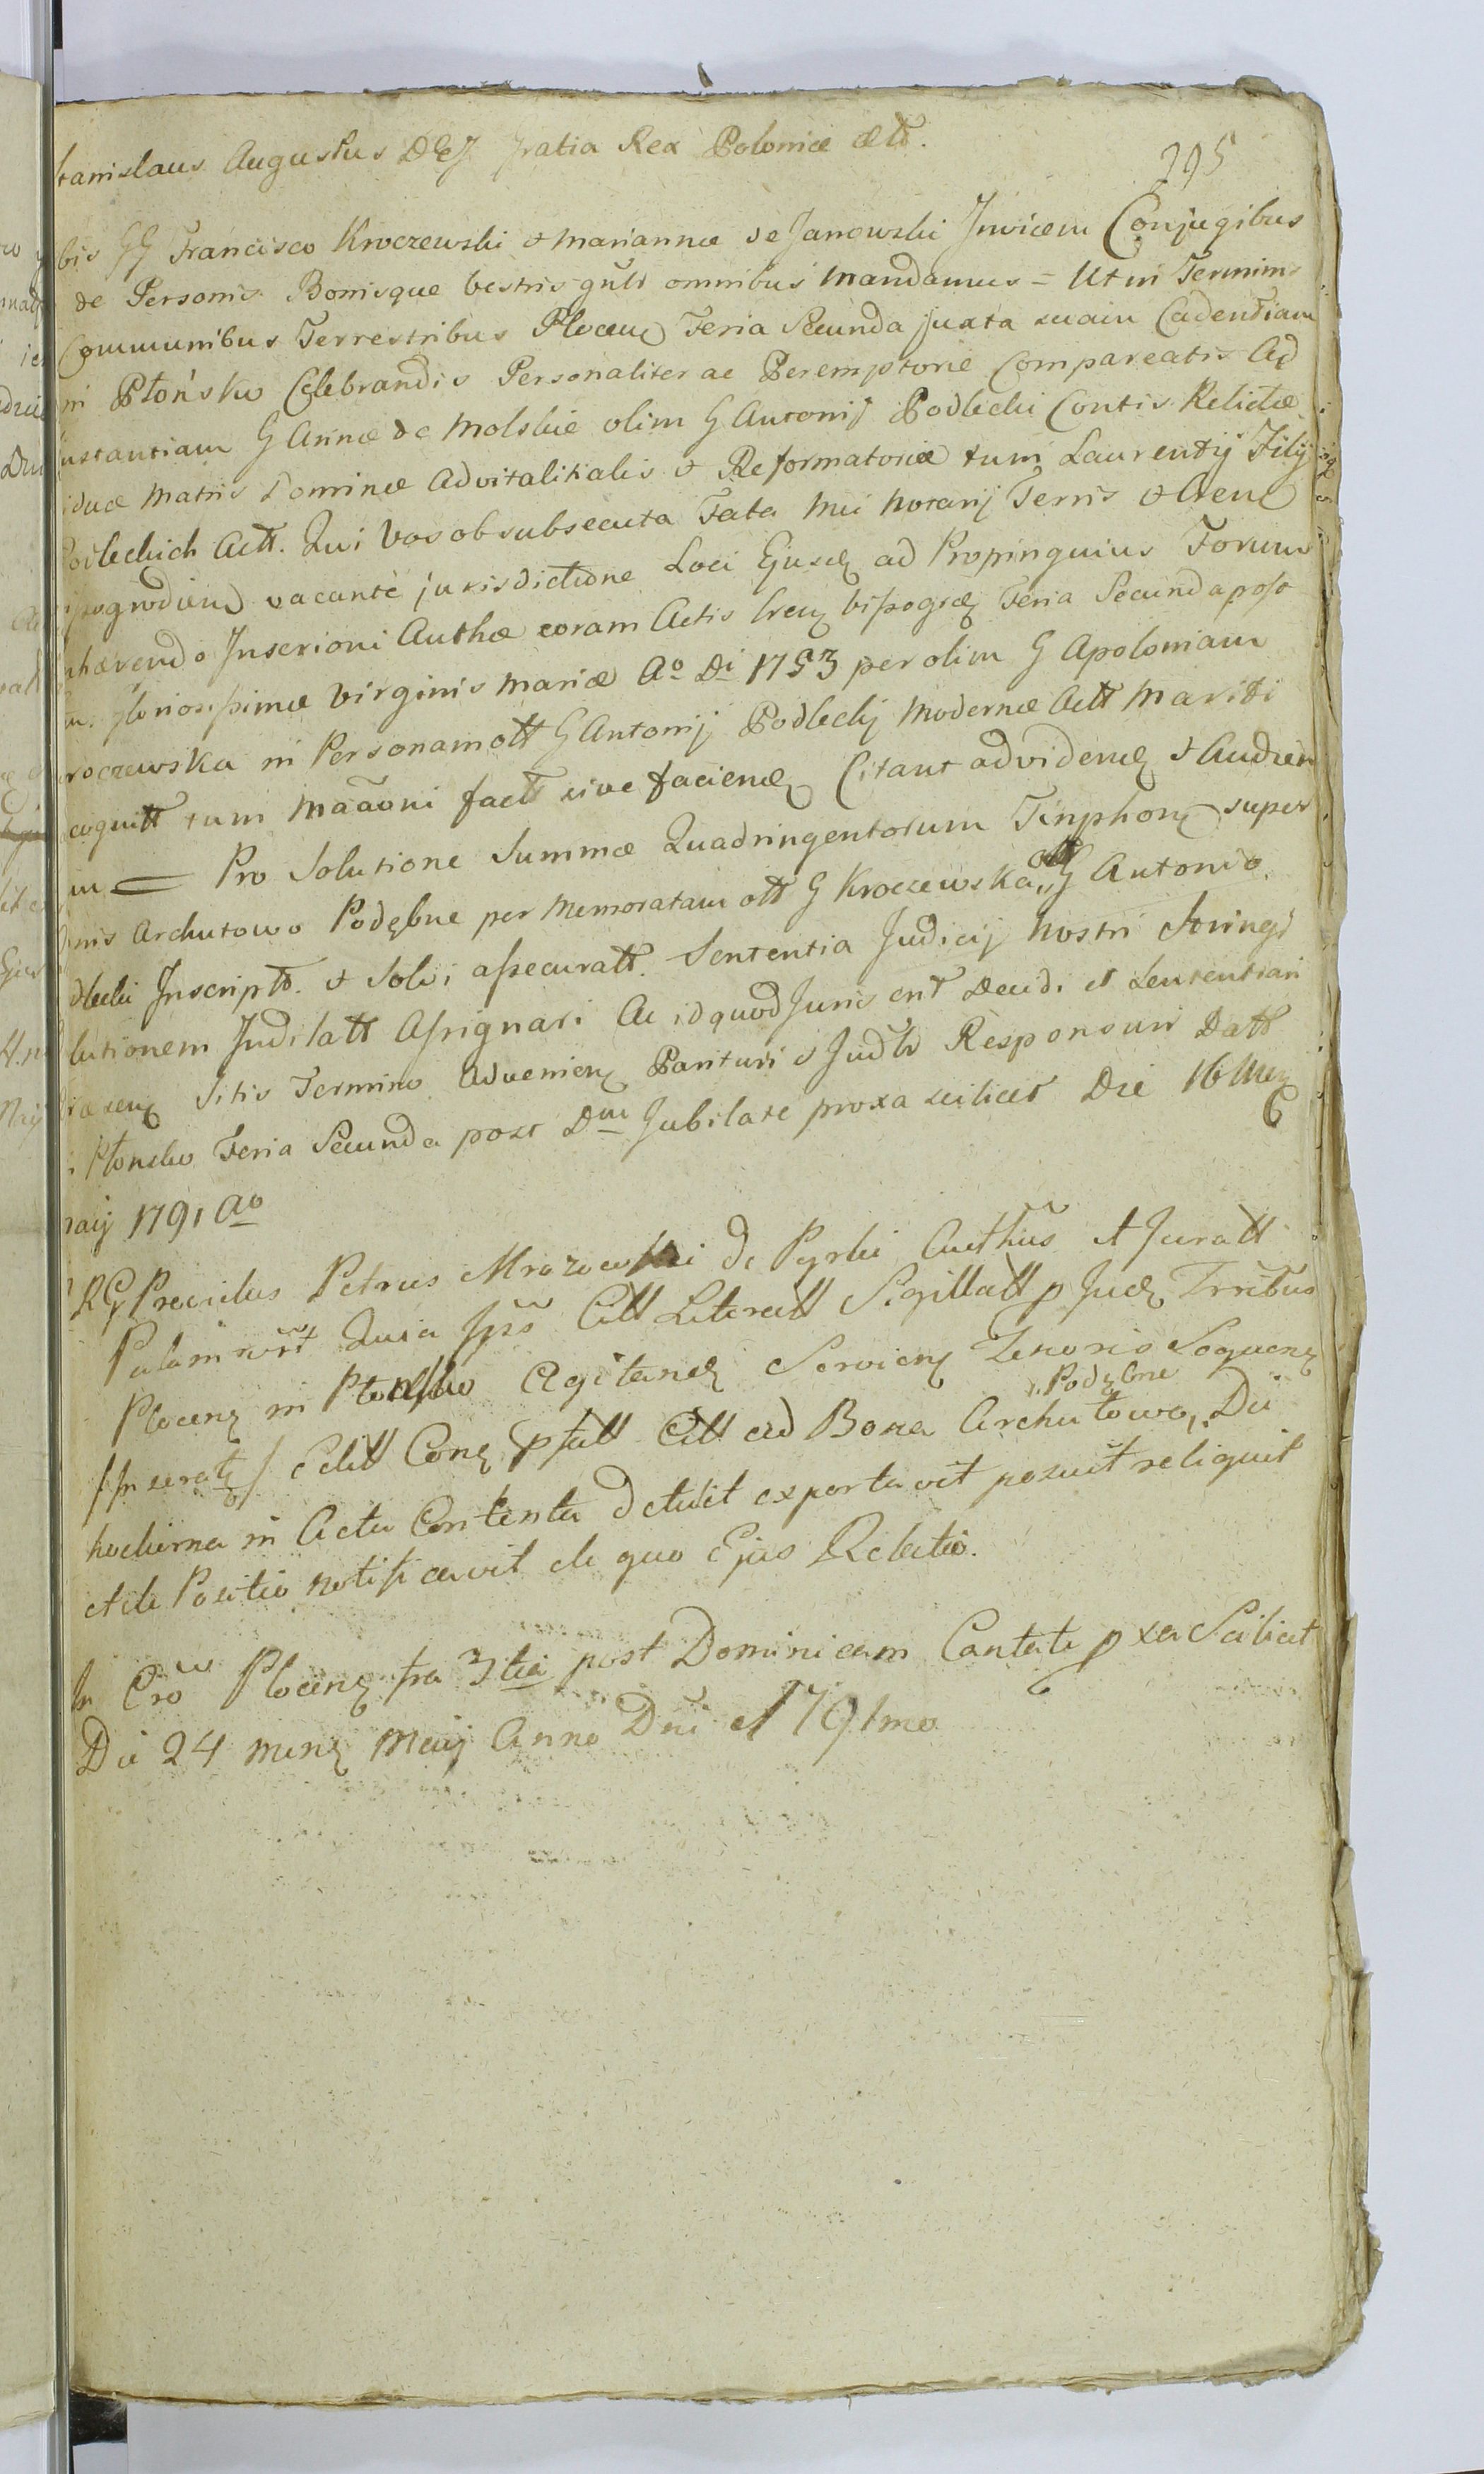 tanislaus Augustus DEJ gratia Rex Poloniæ ett.
295
bis GG Francisco Kroczewski et Mariannæ de Janowski Invicem Conjugibus
de Personis Bonisque vestris gnlr omnibus Mandamus = Ut in Terminis
Communibus Terrestribus Plocen Feria Secunda juxta suam Cadentiam
in Płońsko Celebrandis Personaliter ac Peremptorie Compareatis Ad
nstantiam G Annæ de Molskie olim G Antonij Podlecki Contis Relictæ
iduæ Matris Dominæ Advitalitialis et Reformatoriæ tum Laurentij Filij
Podleckich Actt. Qui Vos ob subsecuta Fata Mei Notarij Terris et Cren
ipogrodien vacante jurisdictione Loci Ejusd ad Propinquius Forum
nhærendo Inscrioni Authæ coram Actis Cren vispogrd Feria Secunda post
m. gloriosissimæ Virginis Mariæ Ao Di 1753 per olim G Apoloniam
roczewska in Personam ott G Antonij Podleckij Modernæ Actt Mariti
cognitt tum Maãoni factt sive faciend Citant ad videnд et Audien
m = Pro Solutione Summæ Quadringentorum Tinphon super
onis Archutowo Podębne per Memoratam ott G Kroczewska ott G Antonio
dlecki Inscriptt. et Solvi assecuratt. Sententia Judicij Nostri Stringi
lutionem Judilatt Assignari Ac id quod Juris erit Decidi et Sententiari
ræsen Sitis Termino Advenien Parituri et Judlr Responsuri Datt
i Płonsko Feria Secunda post Dm Jubilate proxa scilicet Die 16 Men
Maij 1791 Ao
RG Previdus Petrus Mrozowski de Pyrki Authus et Juratt
Palam rcrt Quia Ipse Citt Literatt Sigillatt p Jud Trribus
Plocen in Płonsko Agitand Servien Tenoris Sequen
/Inserat/ Editt Con psatt Citt ad Bona Archutowo, Podębne Die
hodierna in Actu Contenta detulit exportavit posuit reliquit
et de Positio notificavit de quo Ejus Relatio.
In Cro Plocen fra 3tia post Dominicam Cantate pxa Scilicet
Die 24 mens Maij Anno Dni 1791mo